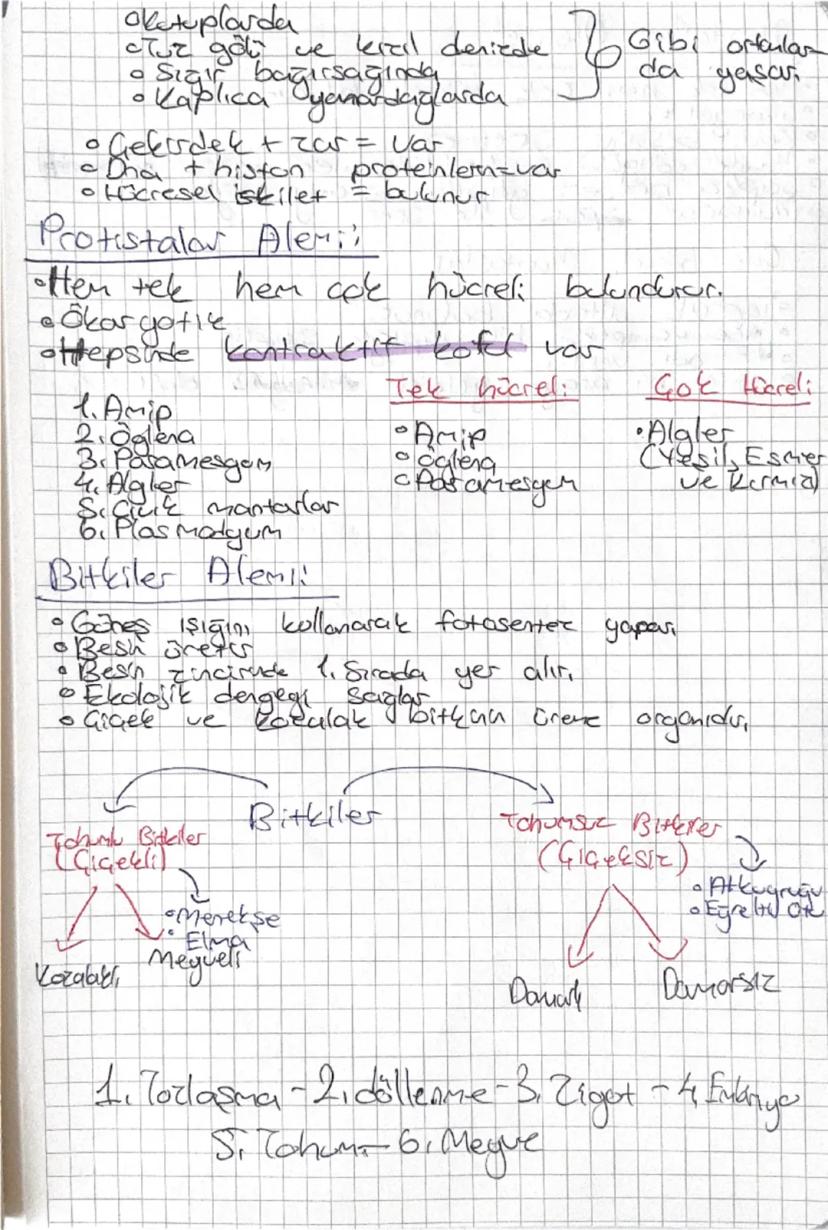 o Kutuplarda
o Tuz gölü ve kızıl denizde
o Sığır bağırsağında
o Kaplıca yanardağlarda
Gibi ortamlar
da yaşar.
o Çekirdek + zar = var
o Dna + histon proteinlerı = var
o Hücresel iskilet = bulunur
Protistalar Alemi:
o Hem tek hem çok hücreli bulundurur.
o Ökaryotik
o Hepsinde kontraktif koful var
1. Amip
2. Öglena
3. Paramesyum
4. Algler
5. Cıvık mantarlar
6. Plasmodyum
Tek hücreli:
o Amip
o Öglena
o Paramesyum
Çok Hücreli:
• Algler
(Yeşil, Esmer
ve Kırmızı)
Bitkiler Alemi:
o Güneş ışığını kullanarak fotosentez yapar.
o Besin üretir
o Besin zincirinde 1. Sırada yer alır.
o Ekolojik dengeyi sağlar
o Çiçek ve kozalak bitkinin üreme organıdır.
Bitkiler
Tohumlu Bitkiler
(Çiçekli)
o Menekşe
• Elma
Kozalaklı
Meyveli
Tohumsuz Bitkiler
(Çiçeksiz)
o Atkuyruğu
o Eğrelti Otu
Damarlı
Damarsız
1. Tozlaşma - 2. döllenme - 3. Zigot - 4. Embriyo
5. Tohum - 6. Meyve